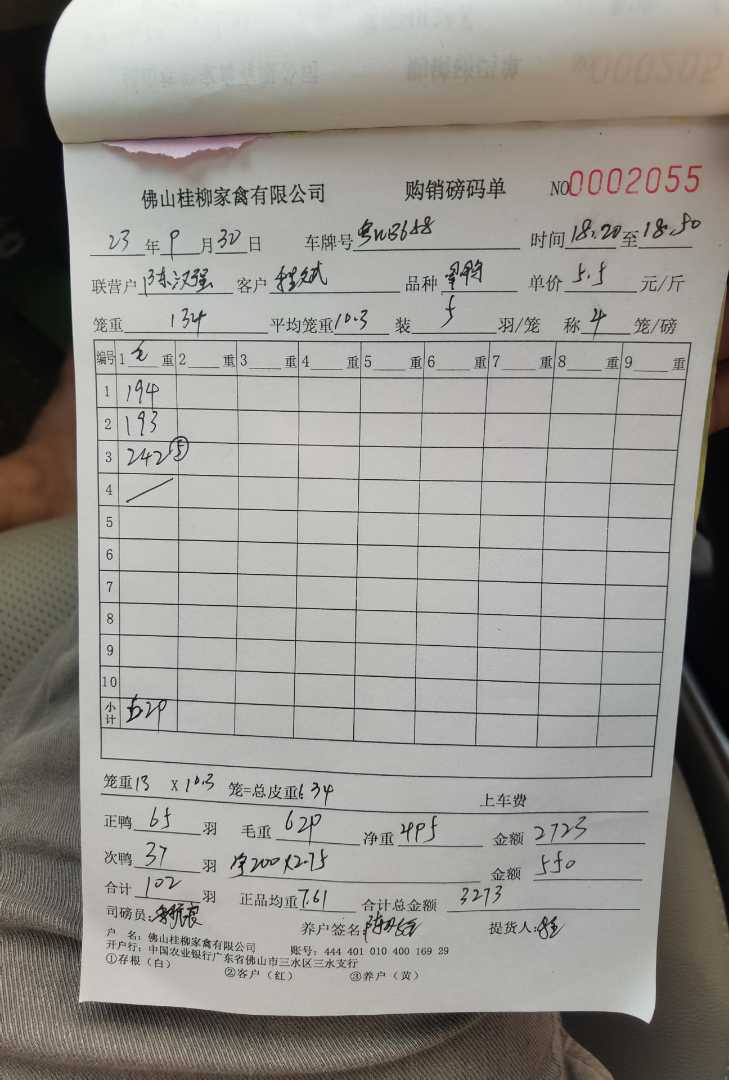 佛山桂柳家禽有限公司 购销磅码单 NO0002055
23年9月30日 车牌号 时间18:20至18:50
联营户陈汉强 客户程斌 品种 单价5.5元/斤
笼重134 平均笼重10.3 装5羽/笼 称4笼/磅
编号 1毛重 2重 3重 4重 5重 6重 7重 8重 9重
1 194
2 193
3 242 ⑤
4
5
6
7
8
9
10
小计 629
笼重13 X10.3 笼=总皮重134 上车费
正鸭65羽 毛重629 净重495 金额2723
次鸭37羽 净200X2.75 金额550
合计102羽 正品均重7.61 合计总金额3273
司磅员: 养户签名 提货人:
户 名: 佛山桂柳家禽有限公司 账号: 444 401 010 400 169 29
开户行: 中国农业银行广东省佛山市三水区三水支行
①存根(白) ②客户(红) ③养户(黄)